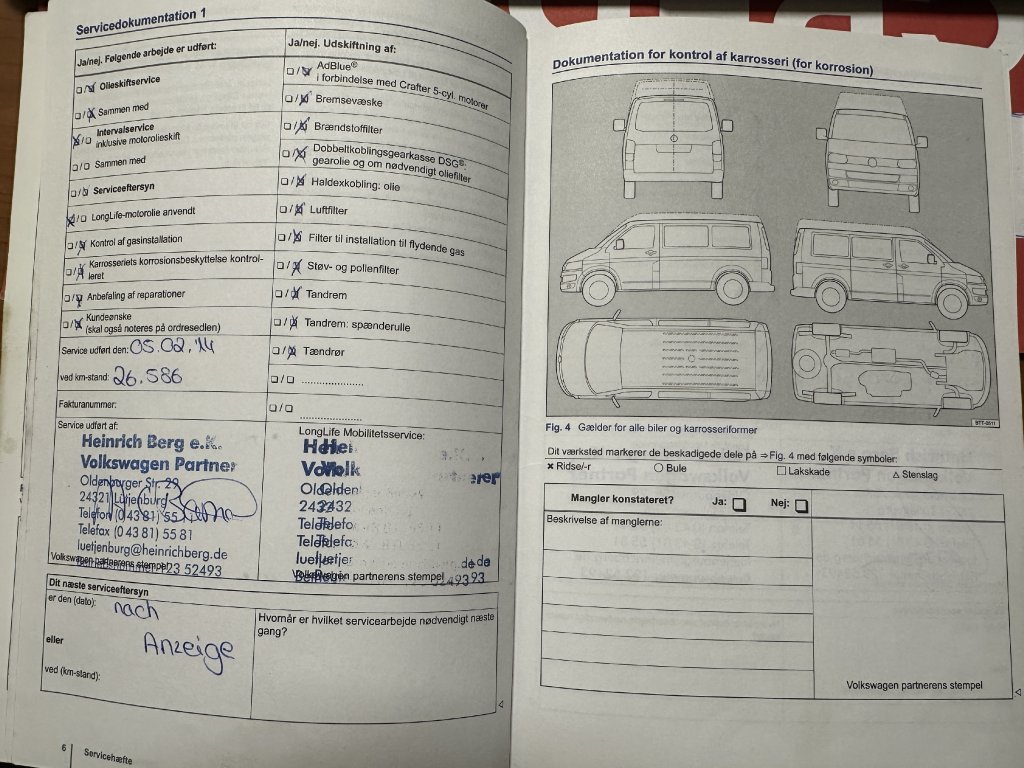 Servicedokumentation 1
Ja/nej. Følgende arbejde er udført:
☐/☒ Olieskiftservice
☐/☒ Sammen med
☒/☐ Intervalservice
inklusive motorolieskift
☐/☐ Sammen med
☐/☒ Serviceeftersyn
☒/☐ LongLife-motorolie anvendt
☐/☒ Kontrol af gasinstallation
☐/☒ Karrosseriets korrosionsbeskyttelse kontrol-
leret
☐/☒ Anbefaling af reparationer
☐/☒ Kundeønske
(skal også noteres på ordresedlen)
Service udført den: 05.02.14
ved km-stand: 26.586
Fakturanummer:
Service udført af:
Heinrich Berg e.K.
Volkswagen Partner
Oldenburger Str. 29
24321 Lütjenburg
Telefon (0 43 81) 55
Telefax (0 43 81) 55 81
luetjenburg@heinrichberg.de
Volkswagen partnerens stempel
123 52493
Ja/nej. Udskiftning af:
☐/☒ AdBlue®
i forbindelse med Crafter 5-cyl. motorer
☐/☒ Bremsevæske
☐/☒ Brændstoffilter
☐/☒ Dobbeltkoblingsgearkasse DSG®:
gearolie og om nødvendigt oliefilter
☐/☒ Haldexkobling: olie
☐/☒ Luftfilter
☐/☒ Filter til installation til flydende gas
☐/☒ Støv- og pollenfilter
☐/☒ Tandrem
☐/☒ Tandrem: spænderulle
☐/☒ Tændrør
☐/☐ ......................
☐/☐ ......................
LongLife Mobilitetsservice:
Volkswagen partnerens stempel
Dit næste serviceeftersyn
er den (dato): nach
eller Anzeige
ved (km-stand):
Hvornår er hvilket servicearbejde nødvendigt næste
gang?
6 Servicehæfte
Dokumentation for kontrol af karrosseri (for korrosion)
BTT-0511
Fig. 4 Gælder for alle biler og karrosseriformer
Dit værksted markerer de beskadigede dele på ⇒ Fig. 4 med følgende symboler:
✖ Ridse/-r ○ Bule ☐ Lakskade △ Stenslag
Mangler konstateret? Ja: ☐ Nej: ☐
Beskrivelse af manglerne:
Volkswagen partnerens stempel